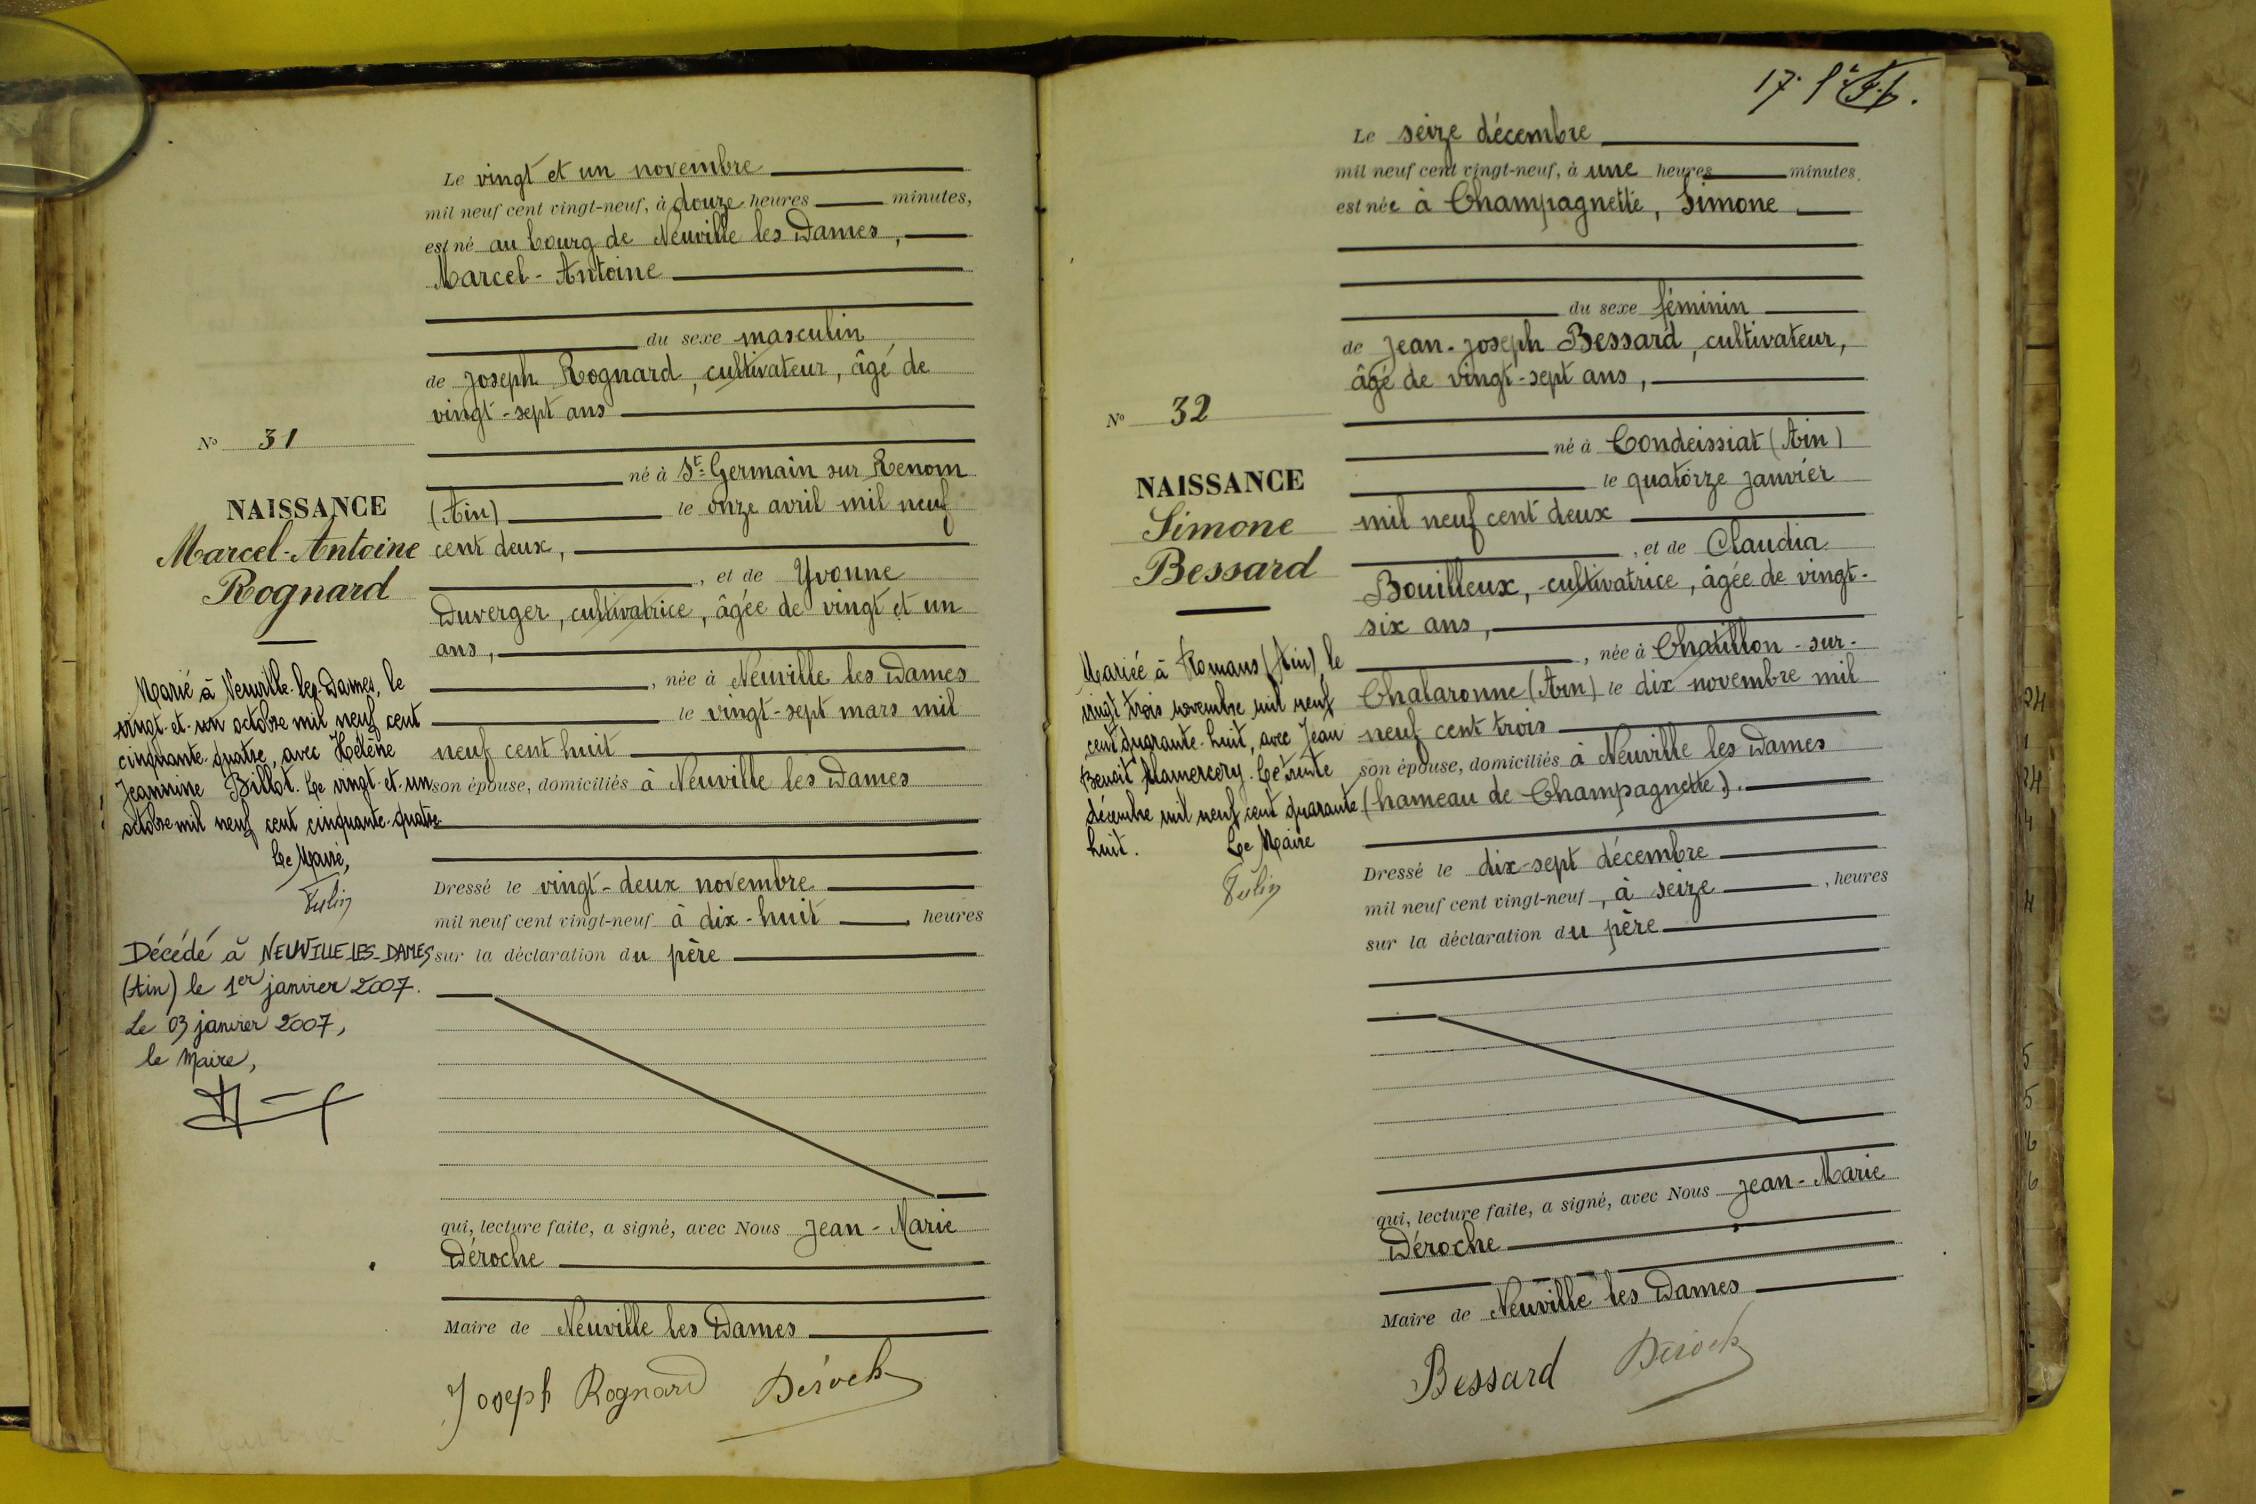 Le vingt et un novembre
mil neuf cent vingt-neuf, à douze heures minutes,
est né au bourg de Neuville les Dames,
Marcel-Antoine
du sexe masculin
de Joseph Rognard, cultivateur, âgé de
vingt-sept ans
né à St Germain sur Renom
(Ain) le onze avril mil neuf
cent deux,
, et de Yvonne
Duverger, cultivatrice, âgée de vingt et un
ans,
, née à Neuville les Dames
le vingt-sept mars mil
neuf cent huit
son épouse, domiciliés à Neuville les Dames
Dressé le vingt-deux novembre
mil neuf cent vingt-neuf à dix-huit heures
sur la déclaration du père
qui, lecture faite, a signé, avec Nous Jean-Marie
Déroche
Maire de Neuville les Dames
Joseph Rognard Déroche
No 31
NAISSANCE
Marcel-Antoine
Rognard
Marié à Neuville-les-Dames, le
vingt-et-un octobre mil neuf cent
cinquante-quatre, avec Hélène
Jeannine Billot. Le vingt-et-un
octobre mil neuf cent cinquante-quatre
Le Maire,
Décédé à NEUVILLE-LES-DAMES
(Ain) le 1er janvier 2007.
Le 03 janvier 2007,
le Maire,
17.
Le seize décembre
mil neuf cent vingt-neuf, à une heures minutes,
est née à Champagnette, Simone
du sexe féminin
de Jean-Joseph Bessard, cultivateur,
âgé de vingt-sept ans,
né à Condeissiat (Ain)
le quatorze janvier
mil neuf cent deux
, et de Claudia
Bouilleux, cultivatrice, âgée de vingt-
six ans,
, née à Chatillon-sur-
Chalaronne (Ain) le dix novembre mil
neuf cent trois
son épouse, domiciliés à Neuville les Dames
(hameau de Champagnette).
Dressé le dix-sept décembre
mil neuf cent vingt-neuf, à seize, heures
sur la déclaration du père
qui, lecture faite, a signé, avec Nous Jean-Marie
Déroche
Maire de Neuville les Dames
Bessard Déroche
No 32
NAISSANCE
Simone
Bessard
Mariée à Romans (Ain) le
vingt trois novembre mil neuf
cent quarante-huit, avec Jean
Benoit Mamercery. Le trente
décembre mil neuf cent quarante
huit. Le Maire